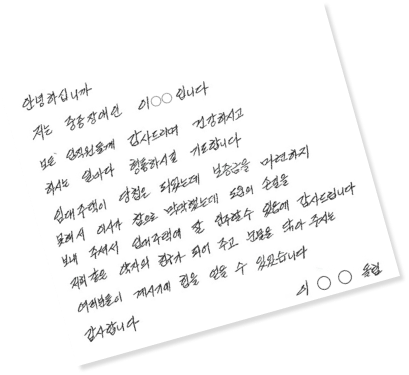 안녕하십니까
저는 중증장애인 이○○ 입니다
모든 임직원들께 감사드리며 건강하시고
하시는 일마다 행통하시길 기도합니다
임대주택이 당첨은 되었는데 보증금을 마련하지
못해서 이사가 참으로 막막했는데 도움의 손길을
보내 주셔서 임대주택에 잘 입주할수 있음에 감사드립니다
저희 같은 약자의 친구가 되어 주고 눈물을 닦아 주시는
여러분들이 계시기에 힘을 얻을 수 있었습니다
감사합니다
이 ○ ○ 올림